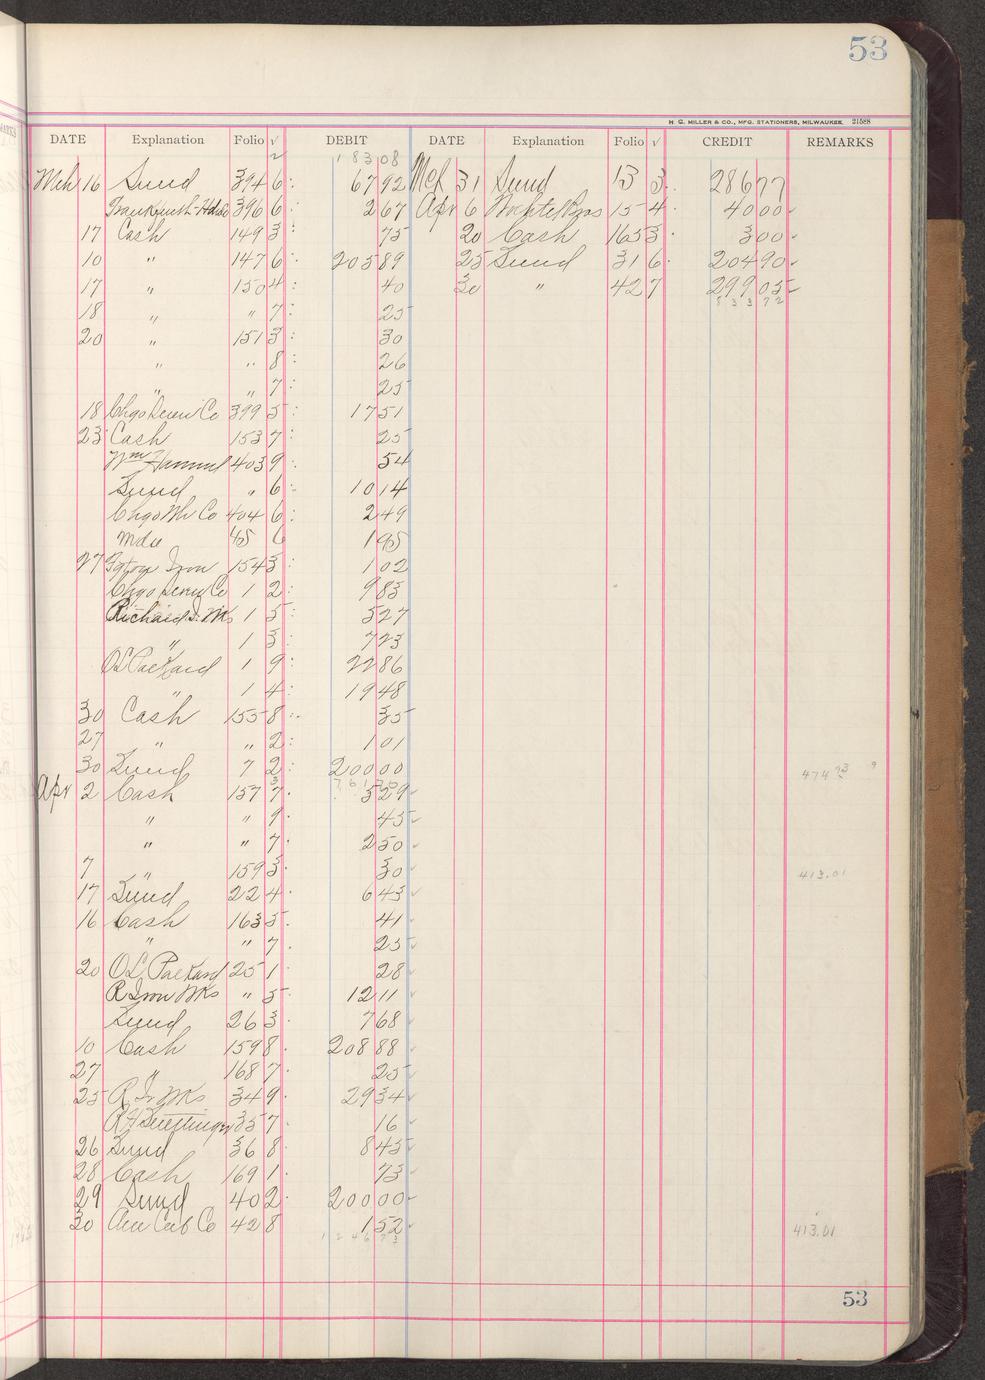 53
H. G. MILLER & CO., MFG. STATIONERS, MILWAUKEE. 21588
DATE Explanation Folio √ DEBIT DATE Explanation Folio √ CREDIT REMARKS
18308
Mch 16 Sund 394 6 67 92 Mch 31 Sund 13 3 286 77
396 6 2 67 Apr 6 Bros 15 4 40 00
17 Cash 149 3 75 20 Cash 165 3 3 00
10 " 147 6 205 89 25 Sund 31 6 204 90
17 " 150 4 40 30 " 42 7 299 05
18 " " 7 25
20 " 151 3 30
" " 8 26
" " 7 25
18 Chgo Screw Co 399 5 17 51
23 Cash 153 7 25
Wm Hammel 403 9 54
Sund " 6 10 14
Chgo Wh Co 404 6 2 49
Mdse 45 6 1 95
27 Iron 154 3 1 02
Chgo Screw Co 1 2 9 83
Richards I. Wks 1 5 5 27
" 1 3 7 23
OL Packard 1 9 22 86
" 1 4 19 48
30 Cash 155 8 35
27 " " 2 1 01
30 Sund 7 2 200 00
Apr 2 Cash 157 7 5 29
" " 9 45
" " 7 2 50
7 " 159 3 30
413.01
17 Sund 22 4 6 43
16 Cash 163 5 41
" " 7 25
20 OL Packard 25 1 28
R Iron Wks " 5 12 11
Sund 26 3 7 68
10 Cash 159 8 208 88
27 " 168 7 25
25 R Ir Wks 34 9 29 34
35 7 16
26 Sund 36 8 8 45
28 Cash 169 1 73
29 Sund 40 2 200 00
30 Co 42 8 1 52
413.01
53